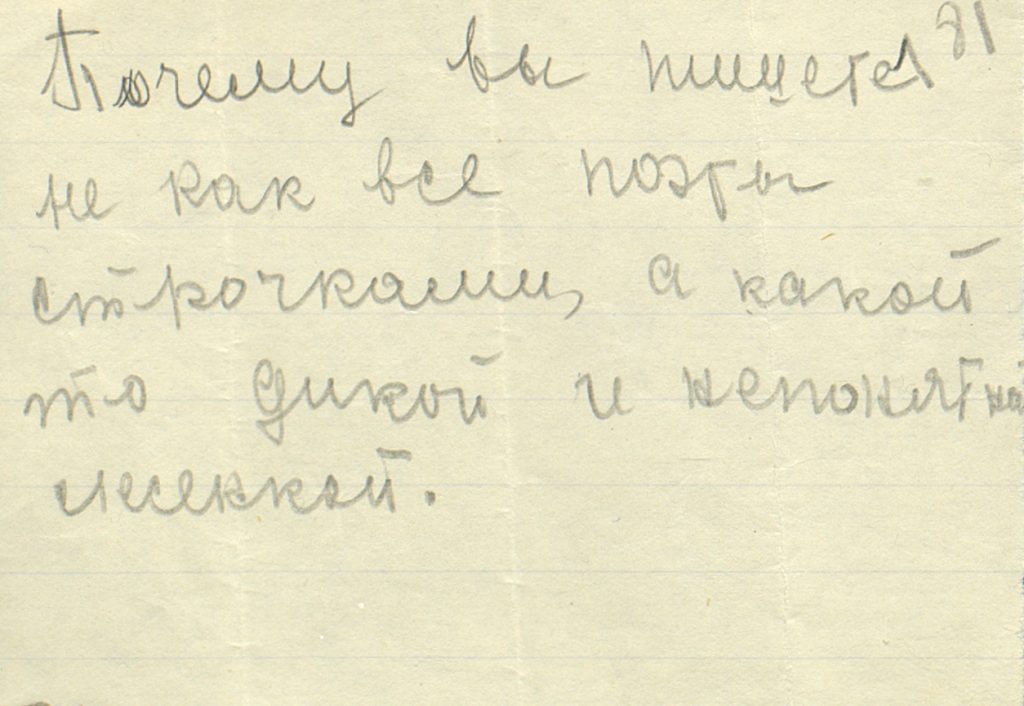 81
Почему вы пишете
не как все поэты
строчками, а какой
то дикой и непонятной
лесенкой.